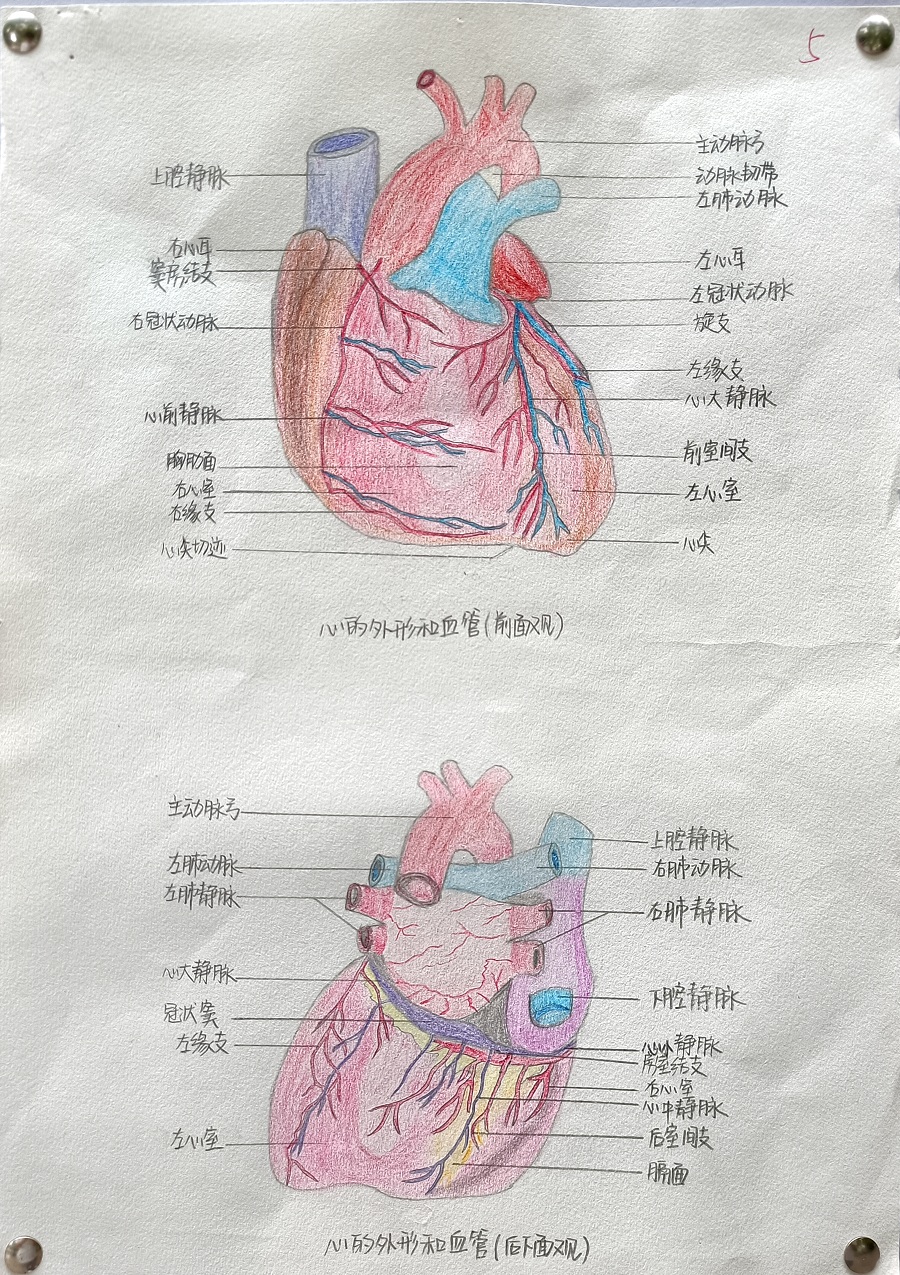 5
上腔静脉
右心耳
窦房结支
右冠状动脉
心前静脉
胸肋面
右心室
右缘支
心尖切迹
主动脉弓
动脉韧带
左肺动脉
左心耳
左冠状动脉
旋支
左缘支
心大静脉
前室间支
左心室
心尖
心的外形和血管(前面观)
主动脉弓
左肺动脉
左肺静脉
心大静脉
冠状窦
左缘支
左心室
上腔静脉
右肺动脉
右肺静脉
下腔静脉
心小静脉
房室结支
右心室
心中静脉
后室间支
膈面
心的外形和血管(后下面观)